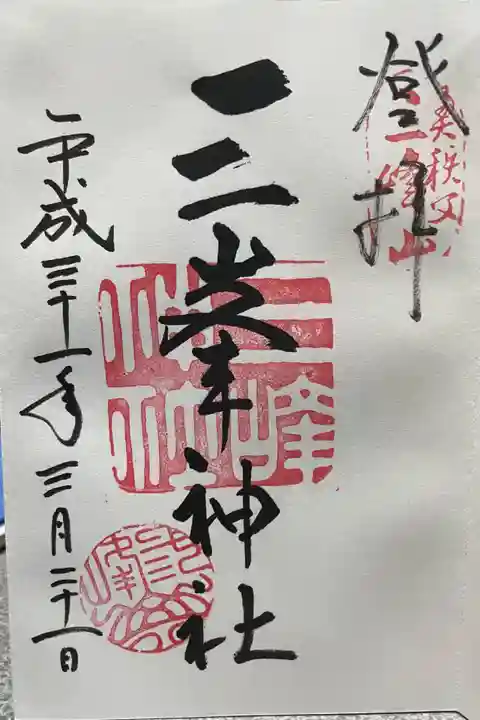 登拝
奥秩父
三峰山
三峯神社
平成三十一年三月二十一日